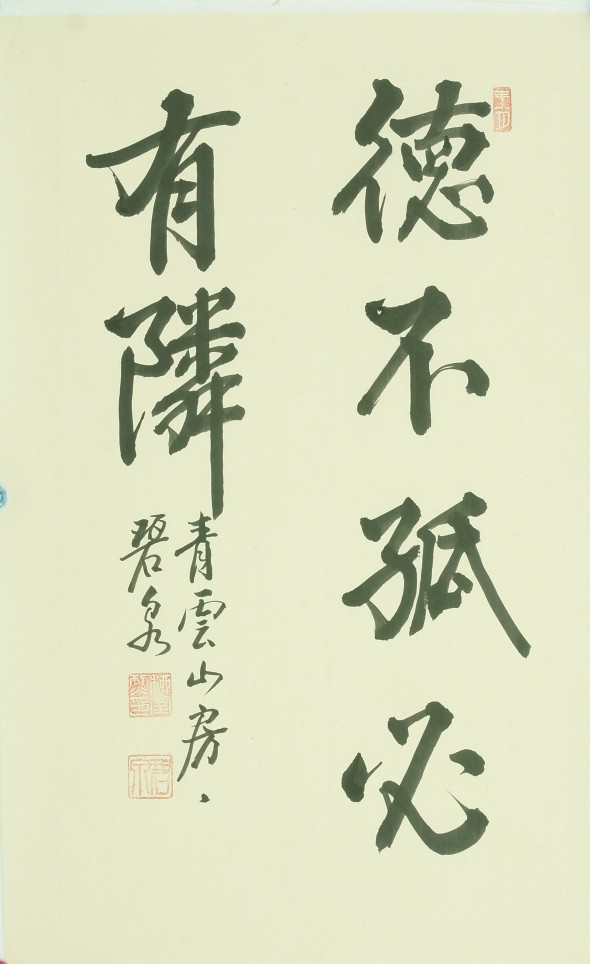 德不孤必
有隣
青雲山房
碧泉